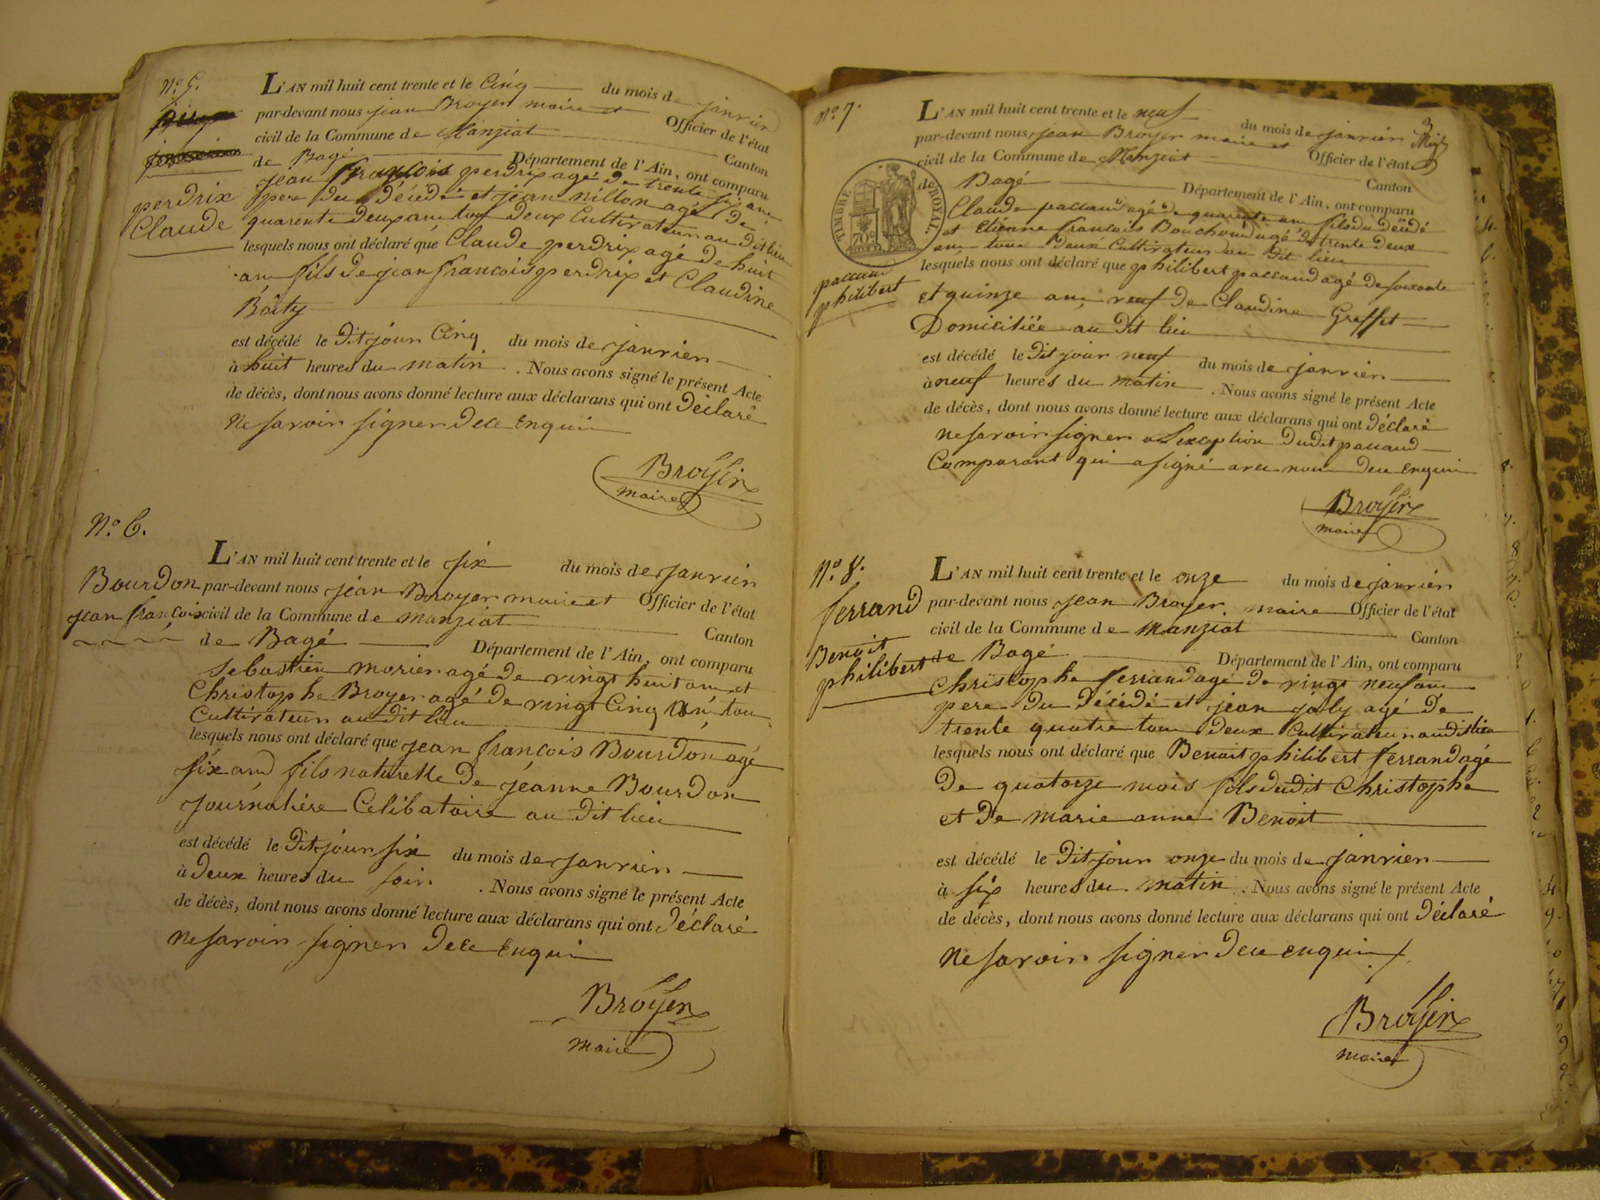 N.o 5.
perdrix
Claude
L'AN mil huit cent trente et le Cinq du mois de janvier
par-devant nous jean Broyer maire et Officier de l'état
civil de la Commune de Manziat Canton
de Bagé Département de l'Ain, ont comparu
jean françois perdrix agé de trente six ans
pere du décédé et jean nillon agé de
quarente deux ans tous deux Cultivateur au dit lieu
lesquels nous ont déclaré que Claude perdrix agé de huit
ans fils de jean francois perdrix et Claudine
Boity
est décédé le Dit jour Cinq du mois de janvier
à huit heures du matin . Nous avons signé le présent Acte
de décès, dont nous avons donné lecture aux déclarans qui ont Déclaré
ne savoir signer de ce Enquis
Broyer
maire
N.o 6.
Bourdon
jean françois
L'AN mil huit cent trente et le six du mois de janvier
par-devant nous jean Broyer maire et Officier de l'état
civil de la Commune de manziat Canton
de Bagé Département de l'Ain, ont comparu
Sebastien morier agé de vingt huit ans et
Christophe Broyer agé de vingt Cinq ans tous
Cultivateur au dit lieu
lesquels nous ont déclaré que jean françois Bourdon agé
six ans fils naturelle de jeanne Bourdon
journaliére Celibataire au Dit lieu
est décédé le Dit jour six du mois de janvier
à Deux heures du soir . Nous avons signé le présent Acte
de décès, dont nous avons donné lecture aux déclarans qui ont Déclaré
ne savoir signer de ce enquis
Broyer
maire
N.o 7.
TIMBRE ROYAL
70c
paccaud
philibert
L'AN mil huit cent trente et le neuf du mois de janvier
par-devant nous jean Broyer maire et Officier de l'état
civil de la Commune de Manziat Canton
Bagé Département de l'Ain, ont comparu
Claude paccaud agé de quarente ans fils du décédé
et Etienne francois Bouchoud agé de trente deux
ans tous deux Cultivateur au dit lieu
lesquels nous ont déclaré que philibert paccaud agé de soixante
et quinze ans veuf de Claudine Greffet
Domiciliée au Dit lieu
est décédé le Dit jour neuf du mois de janvier
à neuf heures du matin . Nous avons signé le présent Acte
de décès, dont nous avons donné lecture aux déclarans qui ont déclaré
ne savoir signer a Lexception dudit paccaud
Comparant qui a signé avec nous de ce enquis
Broyer
maire
N.o 8.
ferrand
Benoit
philibert
L'AN mil huit cent trente et le onze du mois de janvier
par-devant nous jean Broyer maire Officier de l'état
civil de la Commune de Manziat Canton
de Bagé Département de l'Ain, ont comparu
Christophe ferrand agé de vingt neuf ans
pere du décédé et jean joly agé de
trente quatre tous deux Cultivateur audit lieu
lesquels nous ont déclaré que Benoit philibert ferrand agé
De quatorze mois fils dudit Christophe
et De marie anne Benoit
est décédé le Dit jour onze du mois de janvier
à six heures du matin . Nous avons signé le présent Acte
de décès, dont nous avons donné lecture aux déclarans qui ont Déclaré
ne savoir signer de ce enquis
Broyer
maire